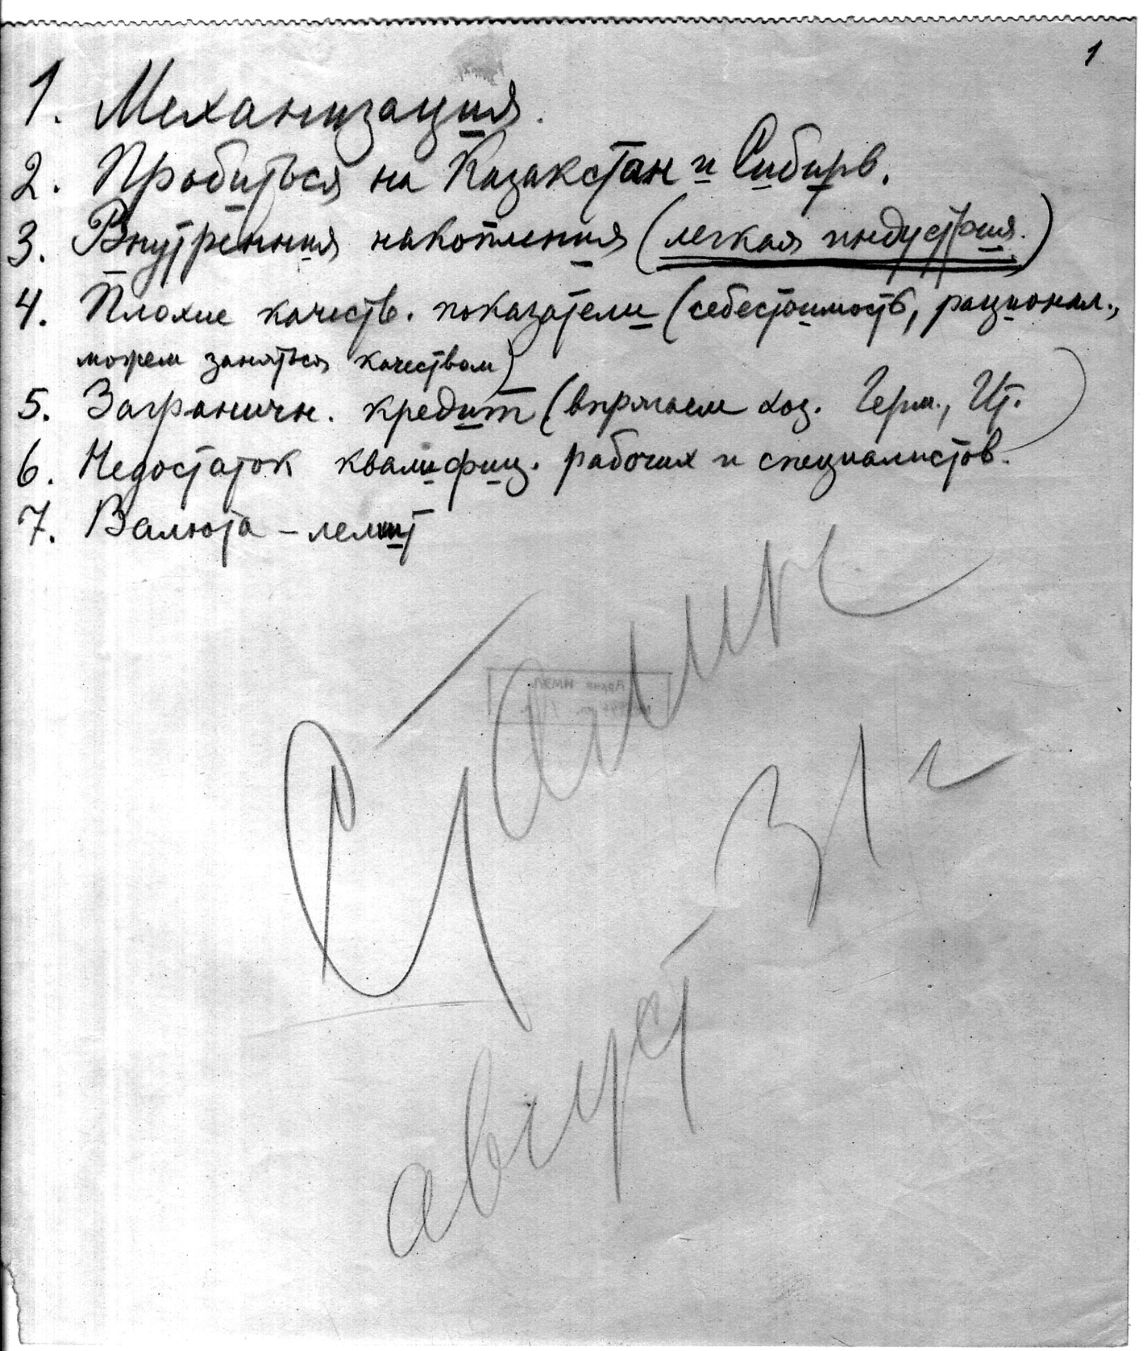 1
1. Механизация.
2. Пробиться на Казакстан и Сибирь.
3. Внутренния накопления (легкая индустрия.)
4. Плохие качеств. показатели (себестоимость, рационал.,
можем заняться качеством)
5. Заграничн. кредит (впрягаем хоз. Герм., Ит.)
6. Недостаток квалифиц. рабочих и специалистов.
7. Валюта – лемит
Сталин
август 31 г